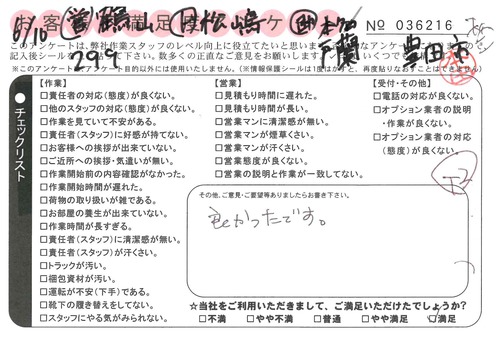 8/10 営 鶴山 作 松嶋 本松
No 036216
お客様満足度アンケート
豊田市
このアンケートは、弊社作業スタッフのレベル向上に役立てたいと思います。
記入後シールを 数多くの率直なご意見をお願いします。
※このアンケート 目的以外には使用いたしません。（※情報保護シールは1度はがすと、再度貼りなおすことはできません）
299
●チェックリスト
【作業】
□責任者の対応（態度）が良くない。
□他のスタッフの対応（態度）が良くない。
□作業を見ていて不安がある。
□責任者（スタッフ）に好感が持てない。
□お客様への挨拶が出来ていない。
□ご近所への挨拶・気遣いが無い。
□作業開始前の内容確認がなかった。
□作業開始時間が遅れた。
□荷物の取り扱いが雑である。
□お部屋の養生が出来ていない。
□作業時間が長すぎる。
□責任者（スタッフ）に清潔感が無い。
□責任者（スタッフ）が汗くさい。
□トラックが汚い。
□梱包資材が汚い。
□運転が不安（下手）である。
□靴下の履き替えをしてない。
□スタッフにやる気がみられない。
【営業】
□見積もり時間に遅れた。
□見積もり時間が長い。
□営業マンに清潔感が無い。
□営業マンが煙草くさい。
□営業マンが汗くさい。
□営業態度が良くない。
□営業の説明と作業が一致してない。
【受付・その他】
□電話の対応が良くない。
□オプション業者の説明
・作業が良くない。
□オプション業者の対応
（態度）が良くない。
その他、ご意見・ご要望等ありましたらお書き下さい。
良かったです。
☆当社をご利用いただきまして、ご満足いただけたでしょうか？
□不満 □やや不満 □普通 □やや満足 □満足